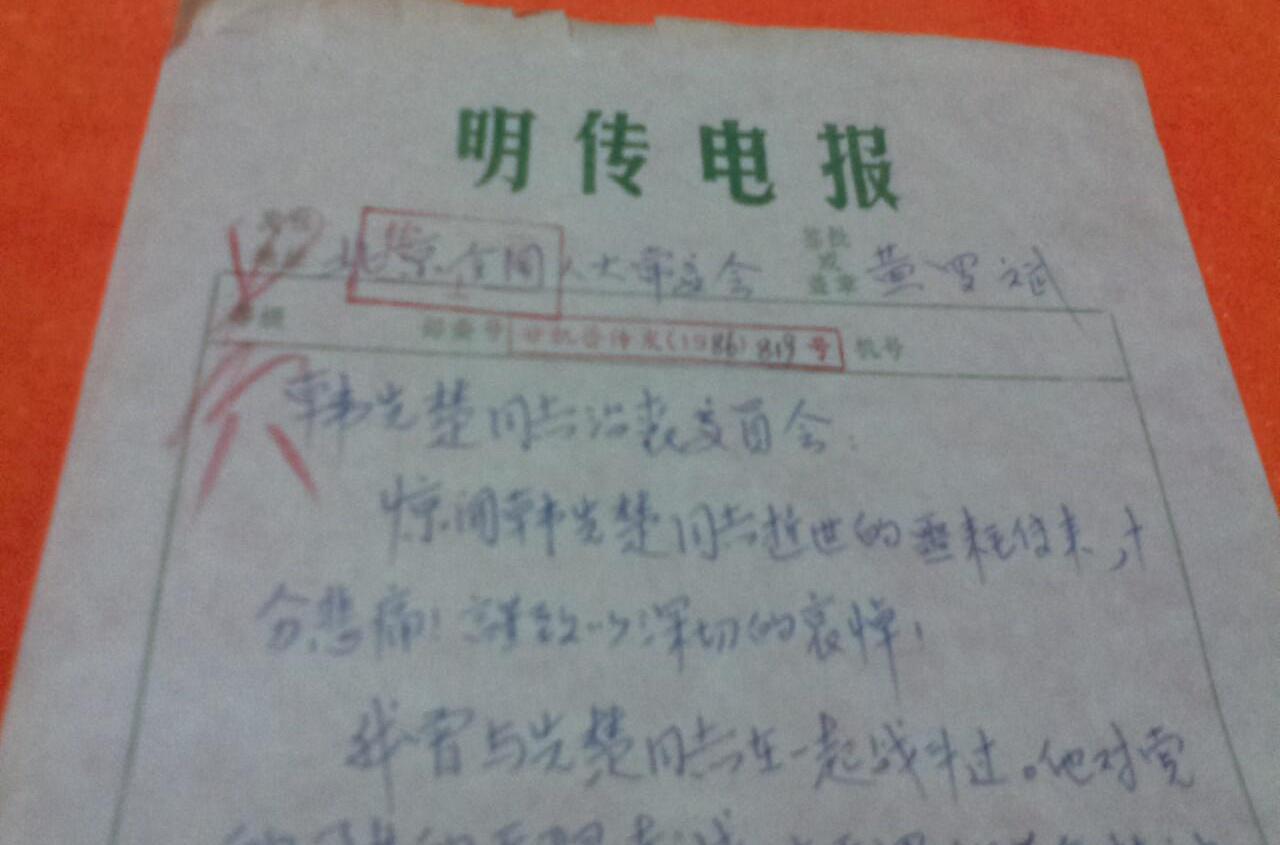 明传电报
北京全国人大常委会 签批 盖章 黄罗斌
等级 甘机发传发(1986)819号 机号
韩先楚同志治丧委员会:
惊闻韩先楚同志逝世的噩耗传来,十
分悲痛!谨致以深切的哀悼!
我曾与先楚同志在一起战斗过。他对党